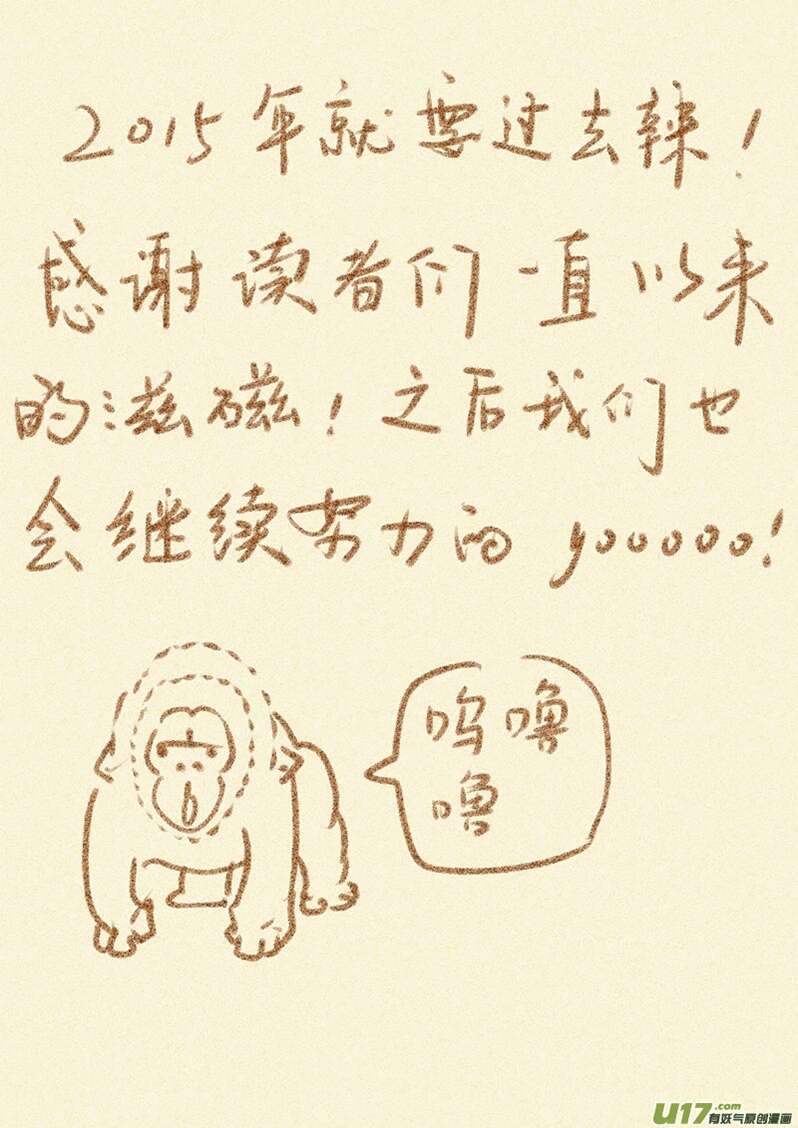 2015年就要过去辣！
感谢读者们一直以来
的滋磁！之后我们也
会继续努力的 yooooo！
呜噜
噜
U17.com
有妖气原创漫画